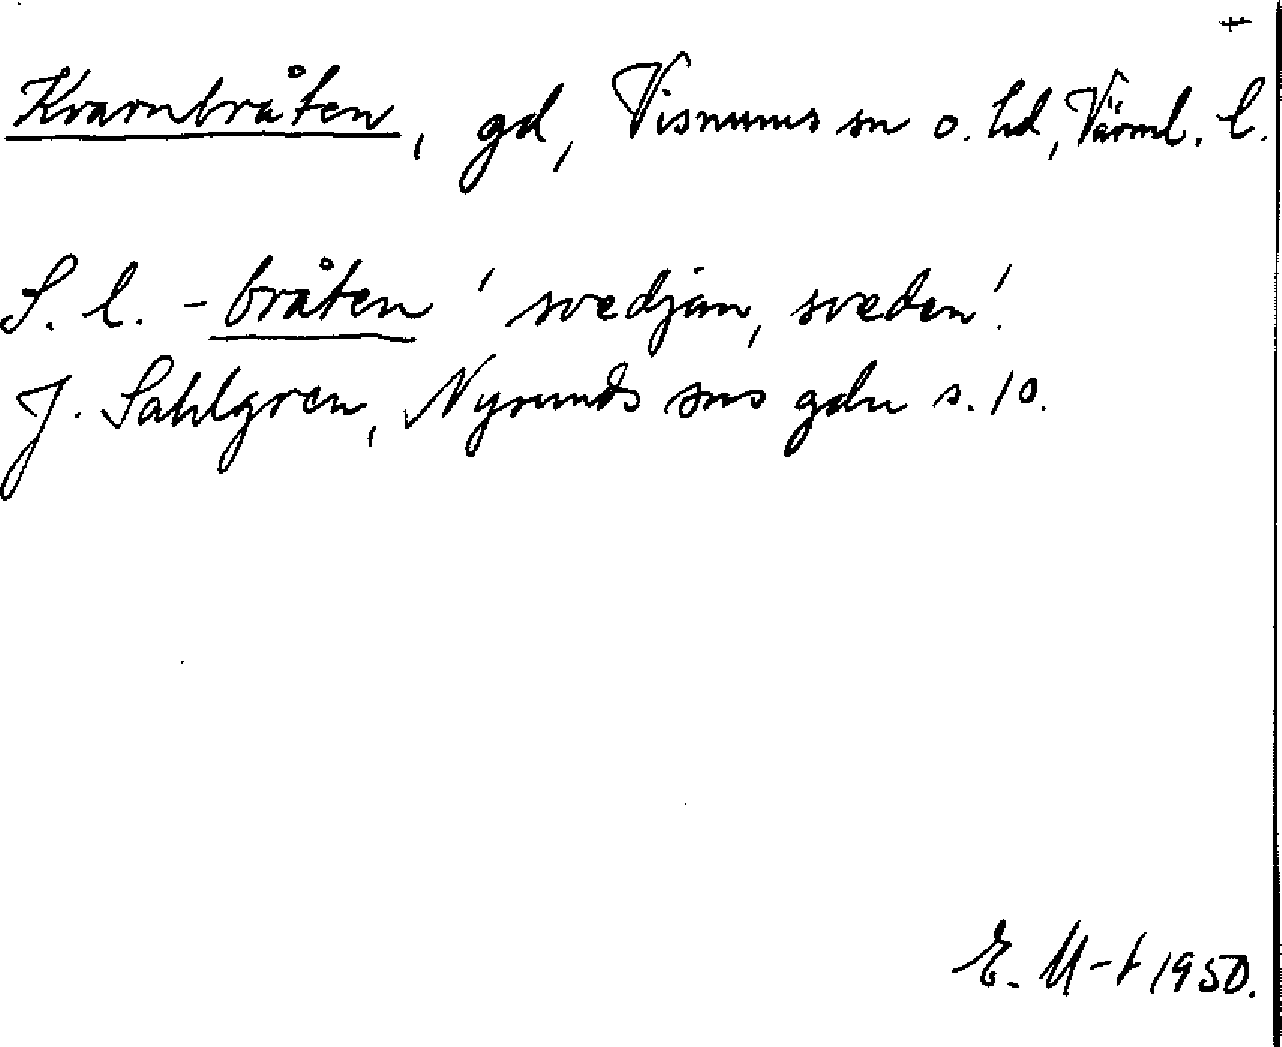 +
Kvarnbråten, gd, Visnums sn o. hd, Värml. l.
S. l. -bråten 'svedjan, sveden'.
J. Sahlgren, Nysunds sns gdn s. 10.
E. M-t 1950.